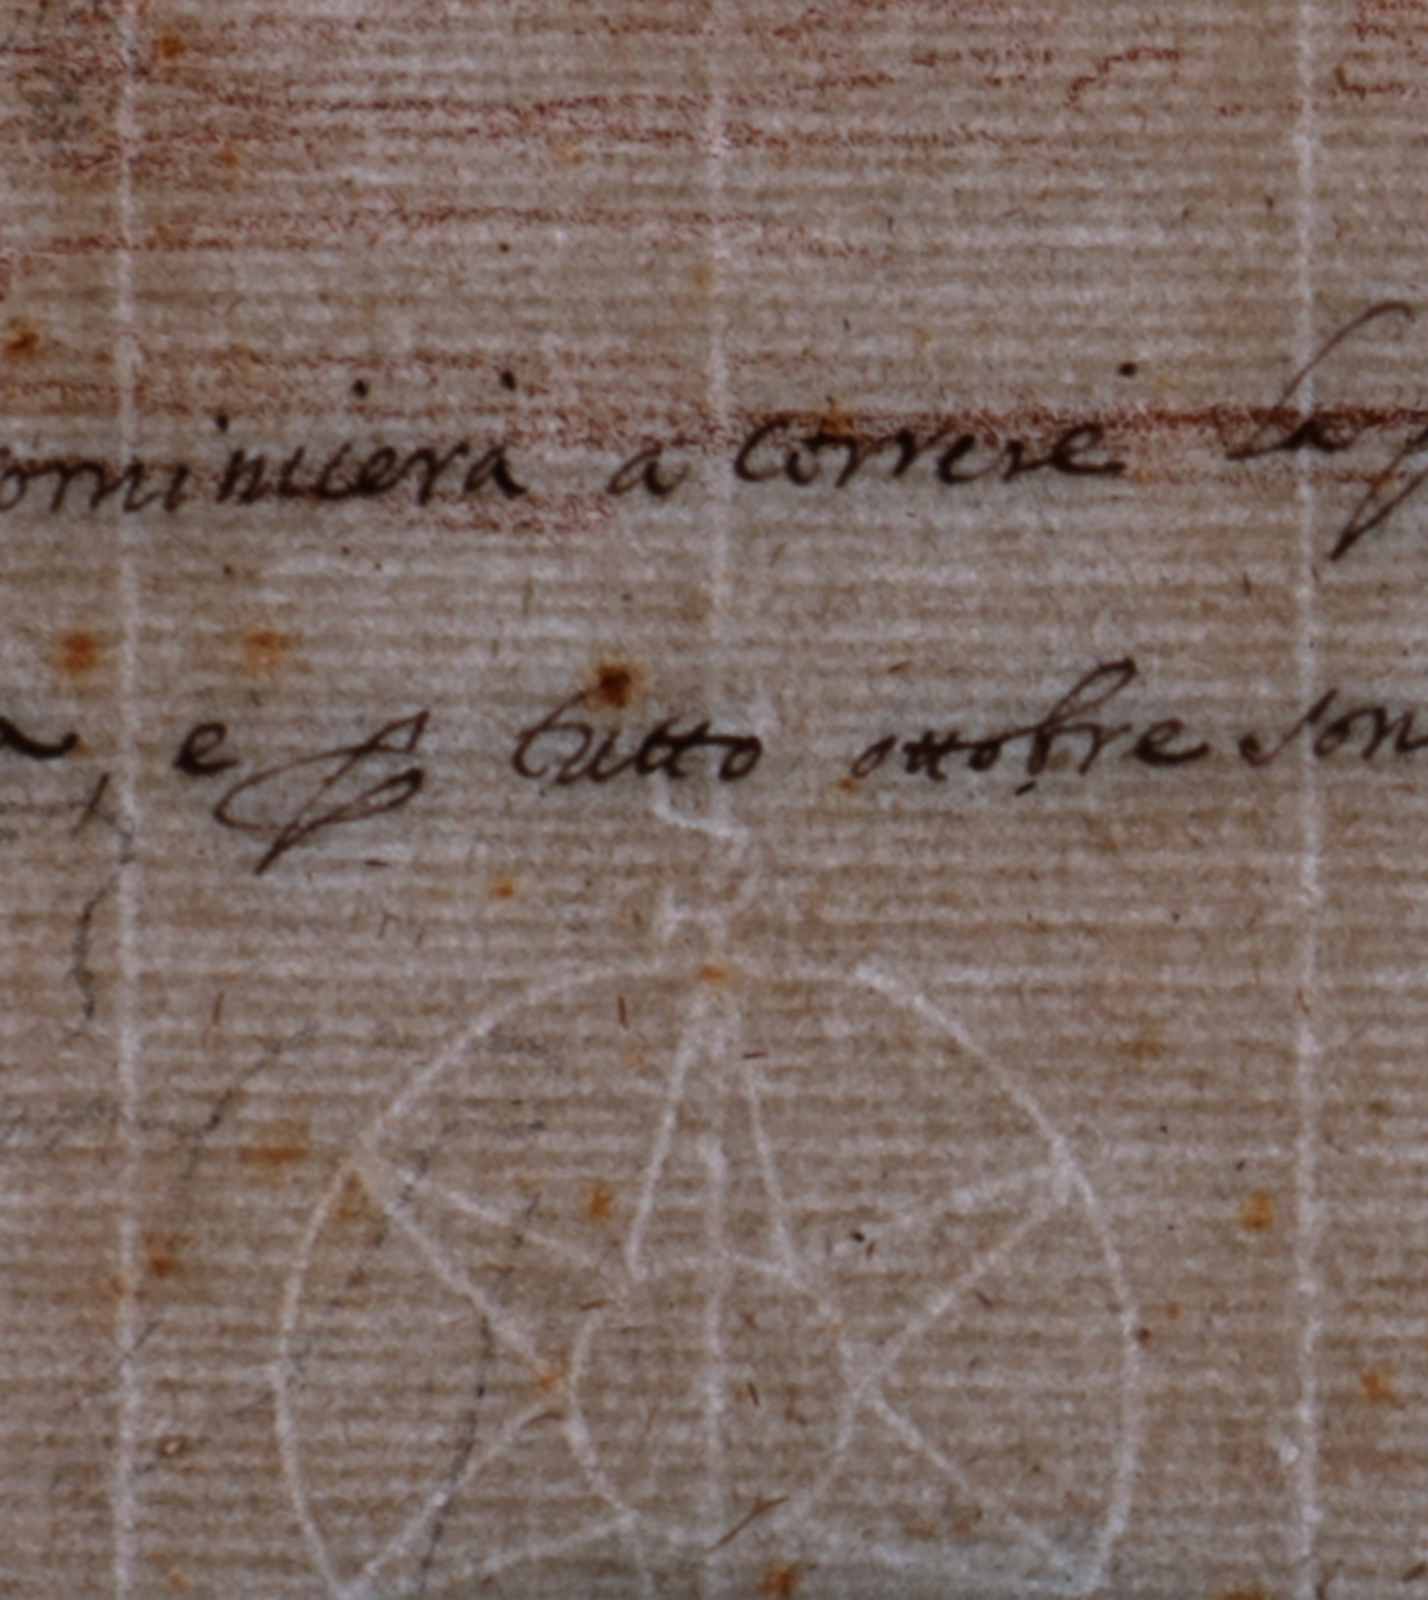 cominicerà a correre la
e ꝑ tutto ottobre son